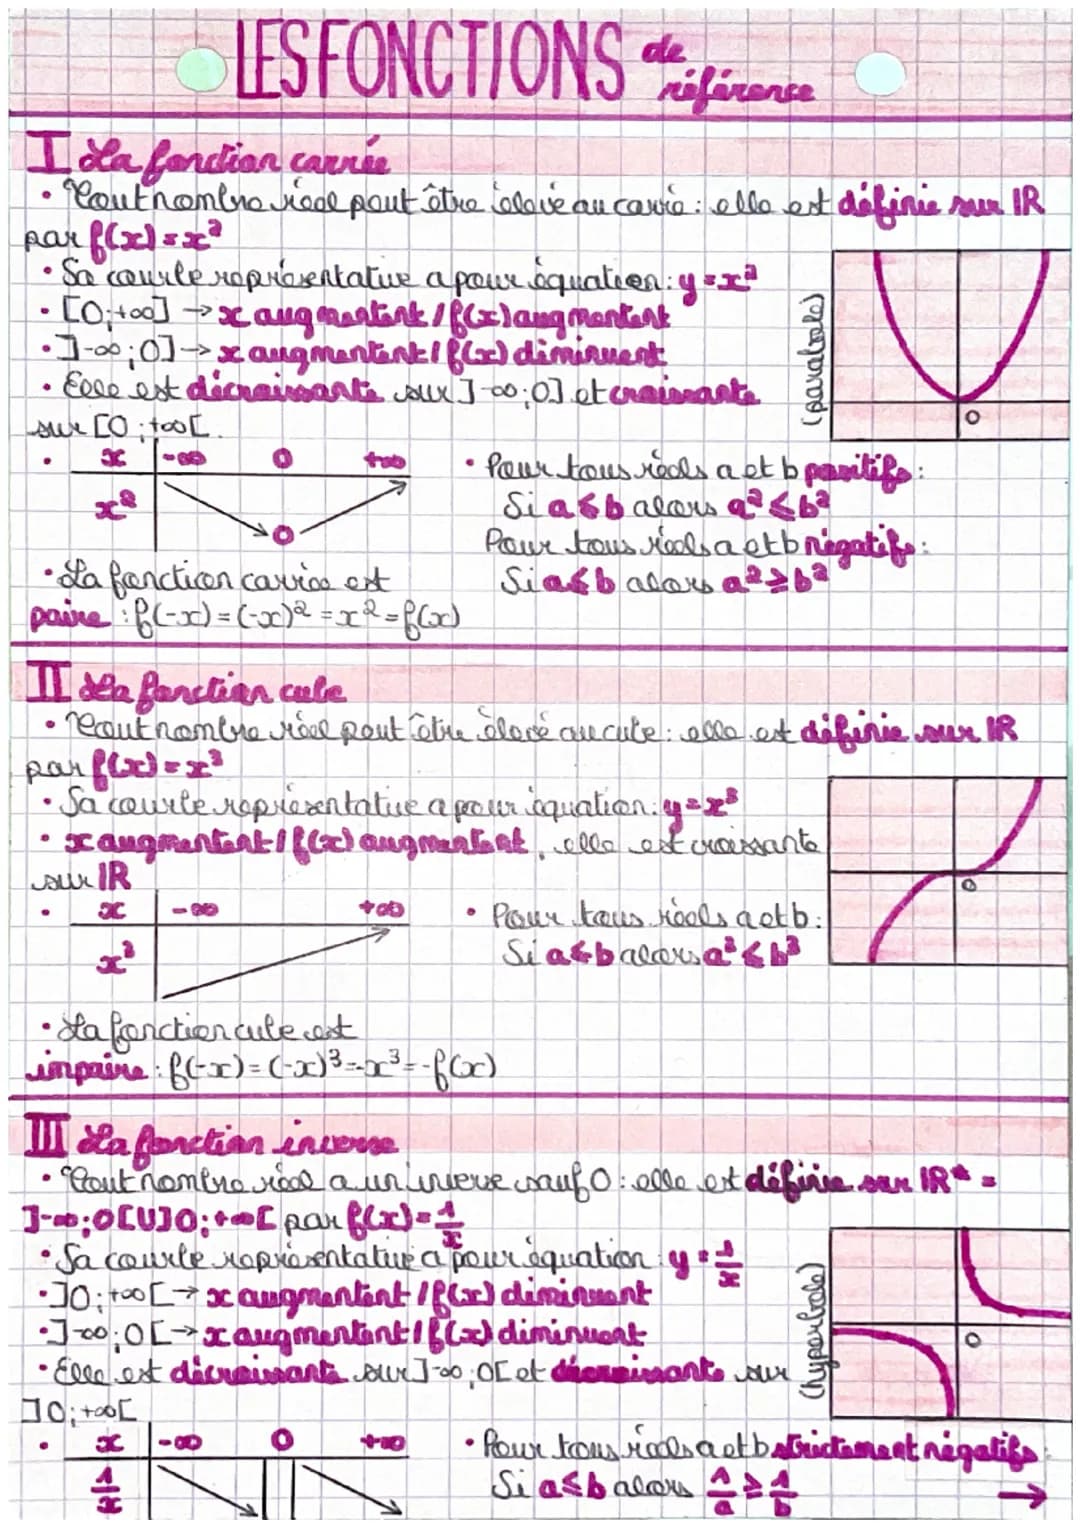 LES FONCTIONS de référence
I La fonction carrée
• Tout nombre réel peut être élevé au carré : elle est définie sur IR
par f(x) = x²
• Sa courbe représentative a pour équation : y = x²
• [0;+∞] → x augmentent / f(x) augmentent
• ]-∞;0] → x augmentent / f(x) diminuent
• Elle est décroissante sur ]-∞;0] et croissante
sur [0;+∞[.
(parabole)
0
• x -∞ 0 +∞
x² 0
• Pour tous réels a et b positifs :
Si a ≤ b alors a² ≤ b²
Pour tous réels a et b négatifs :
Si a ≤ b alors a² ≥ b²
• La fonction carrée est
paire : f(-x) = (-x)² = x² = f(x)
II La fonction cube
• Tout nombre réel peut être élevé au cube : elle est définie sur IR
par f(x) = x³
• Sa courbe représentative a pour équation : y = x³
• x augmentent / f(x) augmentent, elle est croissante
sur IR
0
• x -∞ +∞
x³
• Pour tous réels a et b :
Si a ≤ b alors a³ ≤ b³
• La fonction cube est
impaire : f(-x) = (-x)³ = -x³ = -f(x)
III La fonction inverse
• Tout nombre réel a un inverse sauf 0 : elle est définie sur IR* =
]-∞;0[U]0;+∞[ par f(x) = 1/x
• Sa courbe représentative a pour équation : y = 1/x
• ]0;+∞[ → x augmentent / f(x) diminuent
• ]-∞;0[ → x augmentent / f(x) diminuent
• Elle est décroissante sur ]-∞;0[ et décroissante sur
]0;+∞[
(hyperbole)
0
• x -∞ 0 +∞
1/x
• Pour tous réels a et b strictement négatifs :
Si a ≤ b alors 1/a ≥ 1/b
→